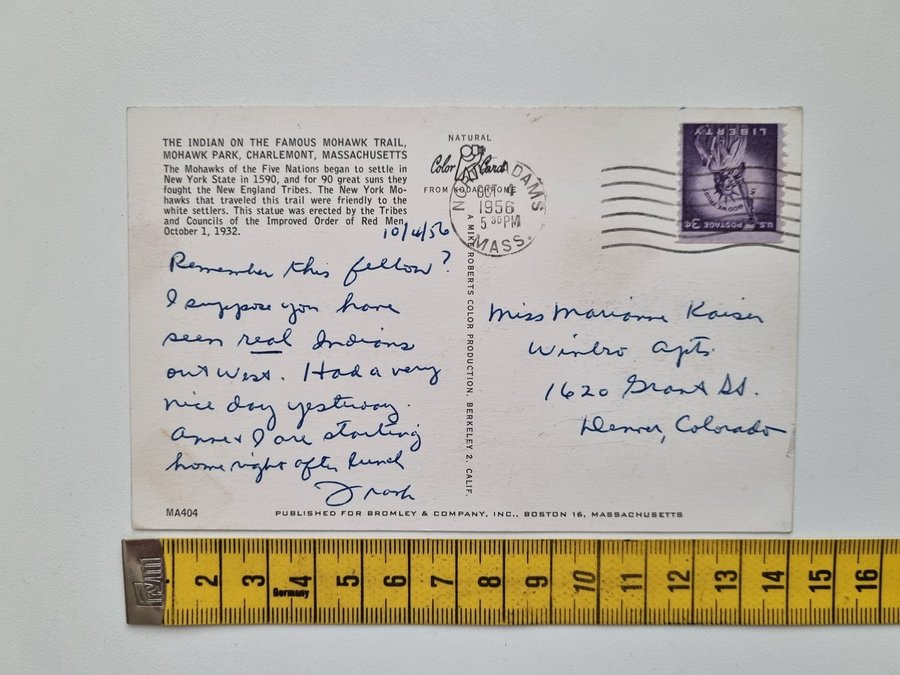 THE INDIAN ON THE FAMOUS MOHAWK TRAIL,
MOHAWK PARK, CHARLEMONT, MASSACHUSETTS
The Mohawks of the Five Nations began to settle in
New York State in 1590, and for 90 great suns they
fought the New England Tribes. The New York Mo-
hawks that traveled this trail were friendly to the
white settlers. This statue was erected by the Tribes
and Councils of the Improved Order of Red Men,
October 1, 1932.
10/4/56
Remember this fellow?
I suppose you have
seen real Indians
out West. Had a very
nice day yesterday.
Anne & I are starting
home right after lunch
Frank
MA404
NATURAL
Color Card
FROM KODACHROME
A MIKE ROBERTS COLOR PRODUCTION, BERKELEY 2, CALIF.
NORTH ADAMS
OCT 4
1956
5 30 PM
MASS.
LIBERTY
IN GOD WE TRUST
U.S. POSTAGE 3¢
Miss Marianne Kaiser
Winbro Apts.
1620 Grant St.
Denver, Colorado
PUBLISHED FOR BROMLEY & COMPANY, INC., BOSTON 16, MASSACHUSETTS
2 3 4 5 6 7 8 9 10 11 12 13 14 15 16
Germany